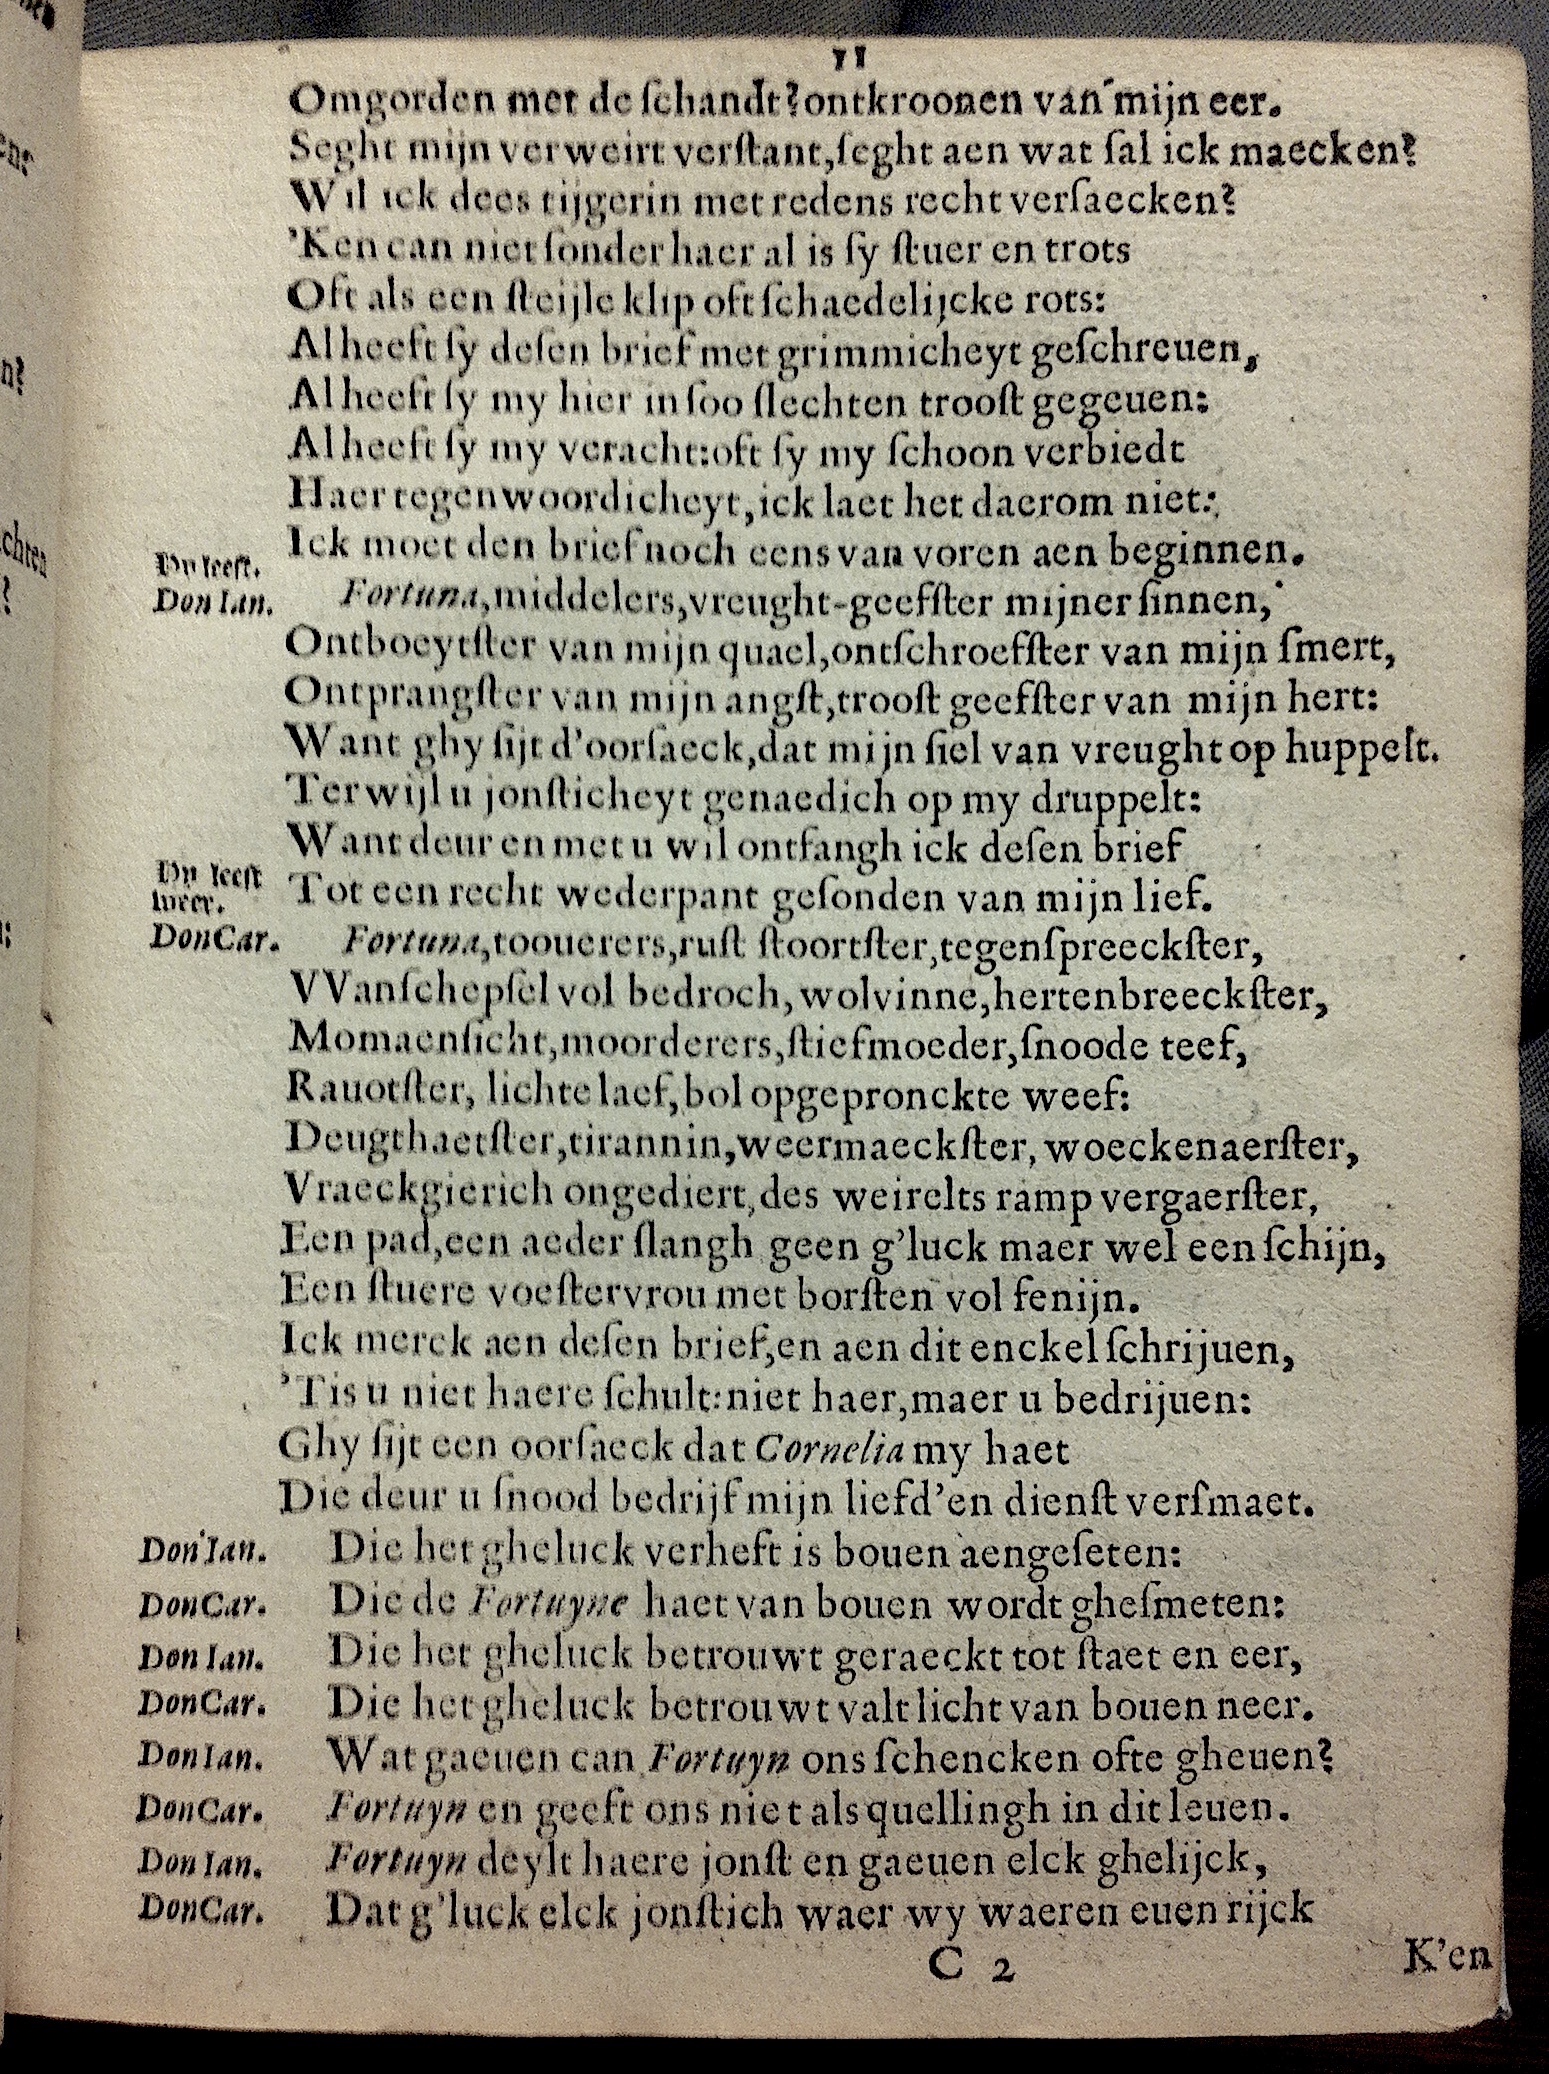 11
Omgorden met de ſchandt? ontkroonen van mijn eer.
Seght mijn verweirt verſtant, ſeght aen wat ſal ick maecken?
Wil ick dees tijgerin met redens recht verſaecken?
'Ken can niet ſonder haer al is ſy ſtuer en trots
Oft als een ſteijle klip oft ſchaedelijcke rots:
Al heeft ſy deſen brief met grimmicheyt geſchreuen,
Al heeft ſy my hier in ſoo ſlechten trooſt gegeuen:
Al heeft ſy my veracht: oft ſy my ſchoon verbiedt
Haer tegenwoordicheyt, ick laet het daerom niet:
Ick moet den brief noch eens van voren aen beginnen.
Hy leeſt.
Don Ian. Fortuna, middelers, vreught-geefſter mijner ſinnen,
Ontboeytſter van mijn quael, ontſchroefſter van mijn ſmert,
Ontprangſter van mijn angſt, trooſt geefſter van mijn hert:
Want ghy ſijt d'oorſaeck, dat mijn ſiel van vreught op huppelt.
Terwijl u jonſticheyt genaedich op my druppelt:
Want deur en met u wil ontfangh ick deſen brief
Hy leeſt
weer.
Tot een recht wederpant geſonden van mijn lief.
Don Car. Fortuna, toouerers, ruſt ſtoortſter, tegenſpreeckſter,
VVanſchepſel vol bedroch, wolvinne, hertenbreeckſter,
Momaenſicht, moorderers, ſtiefmoeder, ſnoode teef,
Rauotſter, lichte laef, bol opgepronckte weef:
Deugthaetſter, tirannin, weermaeckſter, woeckenaerſter,
Vraeckgierich ongediert, des weirelts ramp vergaerſter,
Een pad, een aeder ſlangh geen g'luck maer wel een ſchijn,
Een ſtuere voeſtervrou met borſten vol fenijn.
Ick merck aen deſen brief, en aen dit enckel ſchrijuen,
'Tis u niet haere ſchult: niet haer, maer u bedrijuen:
Ghy ſijt een oorſaeck dat Cornelia my haet
Die deur u ſnood bedrijf mijn liefd' en dienſt verſmaet.
Don Ian. Die het gheluck verheft is bouen aengeſeten:
Don Car. Die de Fortuyne haet van bouen wordt gheſmeten:
Don Ian. Die het gheluck betrouwt geraeckt tot ſtaet en eer,
Don Car. Die het gheluck betrouwt valt licht van bouen neer.
Don Ian. Wat gaeuen can Fortuyn ons ſchencken ofte gheuen?
Don Car. Fortuyn en geeft ons niet als quellingh in dit leuen.
Don Ian. Fortuyn deylt haere jonſt en gaeuen elck ghelijck,
Don Car. Dat g'luck elck jonſtich waer wy waeren euen rijck
C 2
K'en